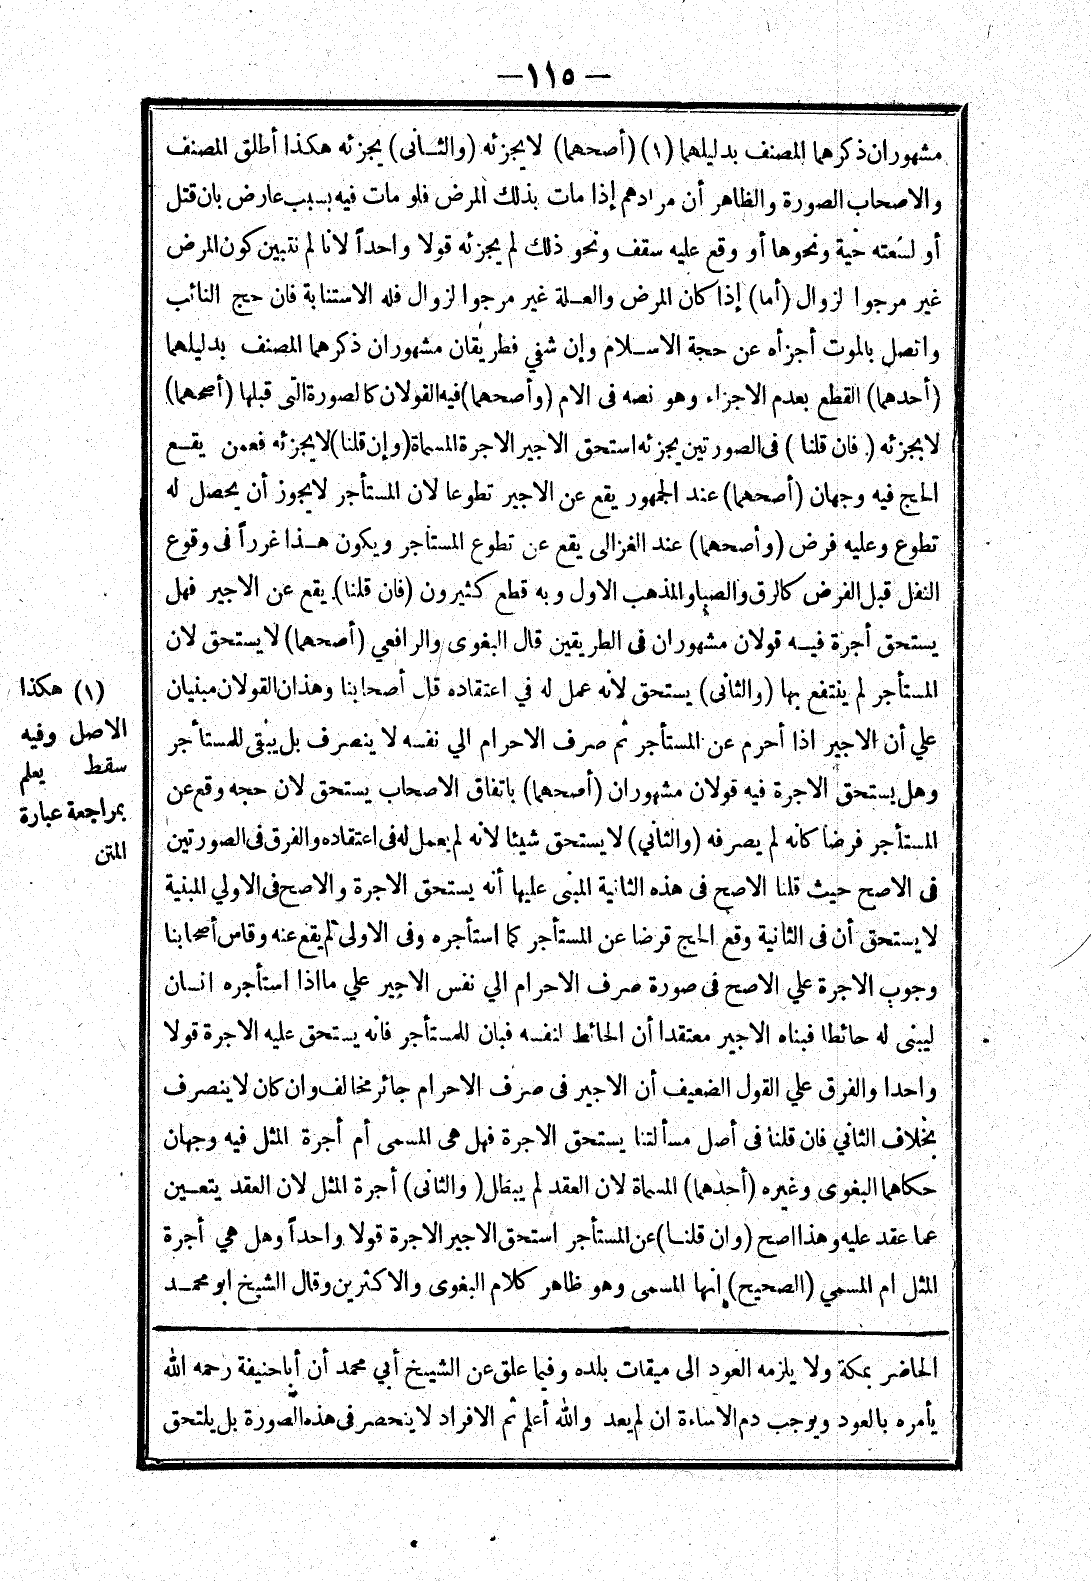 — ١١٥ —
مشهوران ذكرهما المصنف بدليلهما (١) (أصحهما) لا يجزئه (والثـانى) يجزئه هكذا أطلق المصنف
والاصحاب الصورة والظاهر أن مرادهم إذا مات بذلك المرض فلو مات فيه بسبب عارض بان قتل
أو لسعته حية ونحوها أو وقع عليه سقف ونحو ذلك لم يجزئه قولا واحداً لانا لم نتبين كون المرض
غير مرجوا لزوال (أما) إذا كان المرض والعـلة غير مرجوا لزوال فله الاستنابة فان حج النائب
واتصل بالموت أجزأه عن حجة الاسـلام وإن شفي فطريقان مشهوران ذكرهما المصنف بدليلهما
(أحدهما) القطع بعدم الاجزاء وهو نصه فى الام (وأصحهما) فيه القولان كالصورة التى قبلها (أصحهما)
لا يجزئه (فان قلنا) فى الصورتين يجزئه استحق الاجير الاجرة المسماة (وإن قلنا) لا يجزئه فعمن يقـع
الحج فيه وجهان (أصحهما) عند الجمهور يقع عن الاجير تطوعا لان المستأجر لا يجوز أن يحصل له
تطوع وعليه فرض (وأصحهما) عند الغزالى يقع عن تطوع المستأجر ويكون هـذا غرراً فى وقوع
النفل قبل الفرض كالرق والصبا والمذهب الاول وبه قطع كثيرون (فان قلنا) يقع عن الاجير فهل
يستحق أجرة فيـه قولان مشهوران فى الطريقين قال البغوى والرافعي (أصحهما) لا يستحق لان
المستأجر لم ينتفع بها (والثانى) يستحق لانه عمل له في اعتقاده قال أصحابنا وهذان القولان مبنيان
علي أن الاجير اذا أحرم عن المستأجر ثم صرف الاحرام الي نفسه لا ينصرف بل يبقى للمستأجر
وهل يستحق الاجرة فيه قولان مشهوران (أصحهما) باتفاق الاصحاب يستحق لان حجه وقع عن
المستأجر فرضا كأنه لم يصرفه (والثاني) لا يستحق شيئا لانه لم يعمل له فى اعتقاده والفرق فى الصورتين
فى الاصح حيث قلنا الاصح فى هذه الثانية المبنى عليها أنه يستحق الاجرة والاصح فى الاولي المبنية
لا يستحق أن فى الثانية وقع الحج فرضا عن المستأجر كما استأجره وفى الاولى لم يقع عنه وقاس أصحابنا
وجوب الاجرة علي الاصح فى صورة صرف الاحرام الي نفس الاجير علي ما اذا استأجره انسان
ليبنى له حائطا فبناه الاجير معتقدا أن الحائط لنفسه فبان للمستأجر فانه يستحق عليه الاجرة قولا
واحدا والفرق علي القول الضعيف أن الاجير فى صرف الاحرام جائر مخالف وان كان لا ينصرف
بخلاف الثاني فان قلنا فى أصل مسألتنا يستحق الاجرة فهل هى المسمى أم أجرة المثل فيه وجهان
حكاهما البغوى وغيره (أحدهما) المسماة لان العقد لم يبطل (والثانى) أجرة المثل لان العقد يتعـين
عما عقد عليه وهذا اصح (وان قلنـا) عن المستأجر استحق الاجير الاجرة قولا واحداً وهل هي أجرة
المثل ام المسمي (الصحيح) انها المسمى وهو ظاهر كلام البغوى والاكثرين وقال الشيخ ابو محمـد
الحاضر بمكة ولا يلزمه العود الى ميقات بلده وفيما علق عن الشيخ أبي محمد أن أبا حنيفة رحمه الله
يأمره بالعود ويوجب دم الاساءة ان لم يعد والله أعلم ثم الافراد لا ينحصر فى هذه الصورة بل يلتحق
(١) هكذا
الاصل وفيه
سقط يعلم
بمراجعة عبارة
المتن